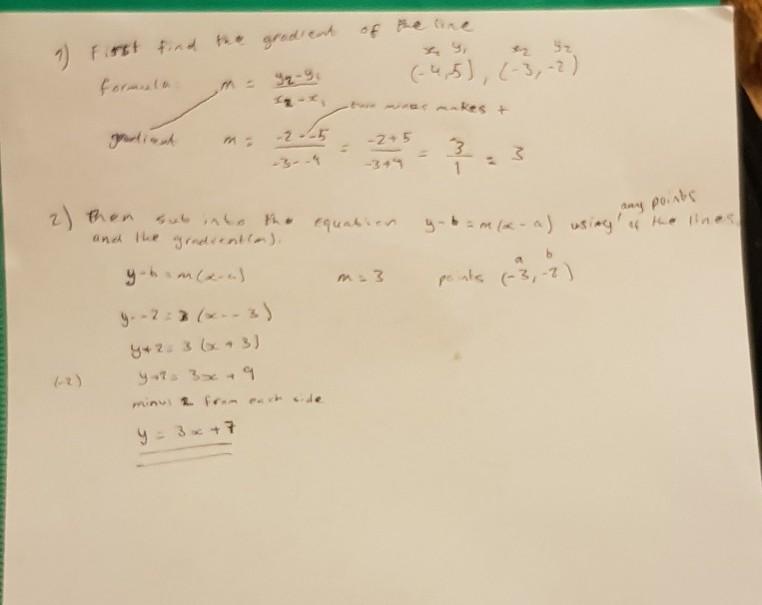 1) First find the gradient of the line
x₁ y₁ x₂ y₂
formula: m = y₂-y₁ / x₂-x₁ (-4,5), (-3,-2)
two minus makes +
gradient m = -2--5 / -3--4 = -2+5 / -3+4 = 3/1 = 3
2) then sub into the equation y-b = m(x-a) using any points of the lines
and the gradient(m).
a b
y-b = m(x-a) m = 3 points (-3,-2)
y--2 = 3 (x--3)
y+2 = 3 (x+3)
(-2) y+2 = 3x + 9
minus 2 from each side
y = 3x + 7